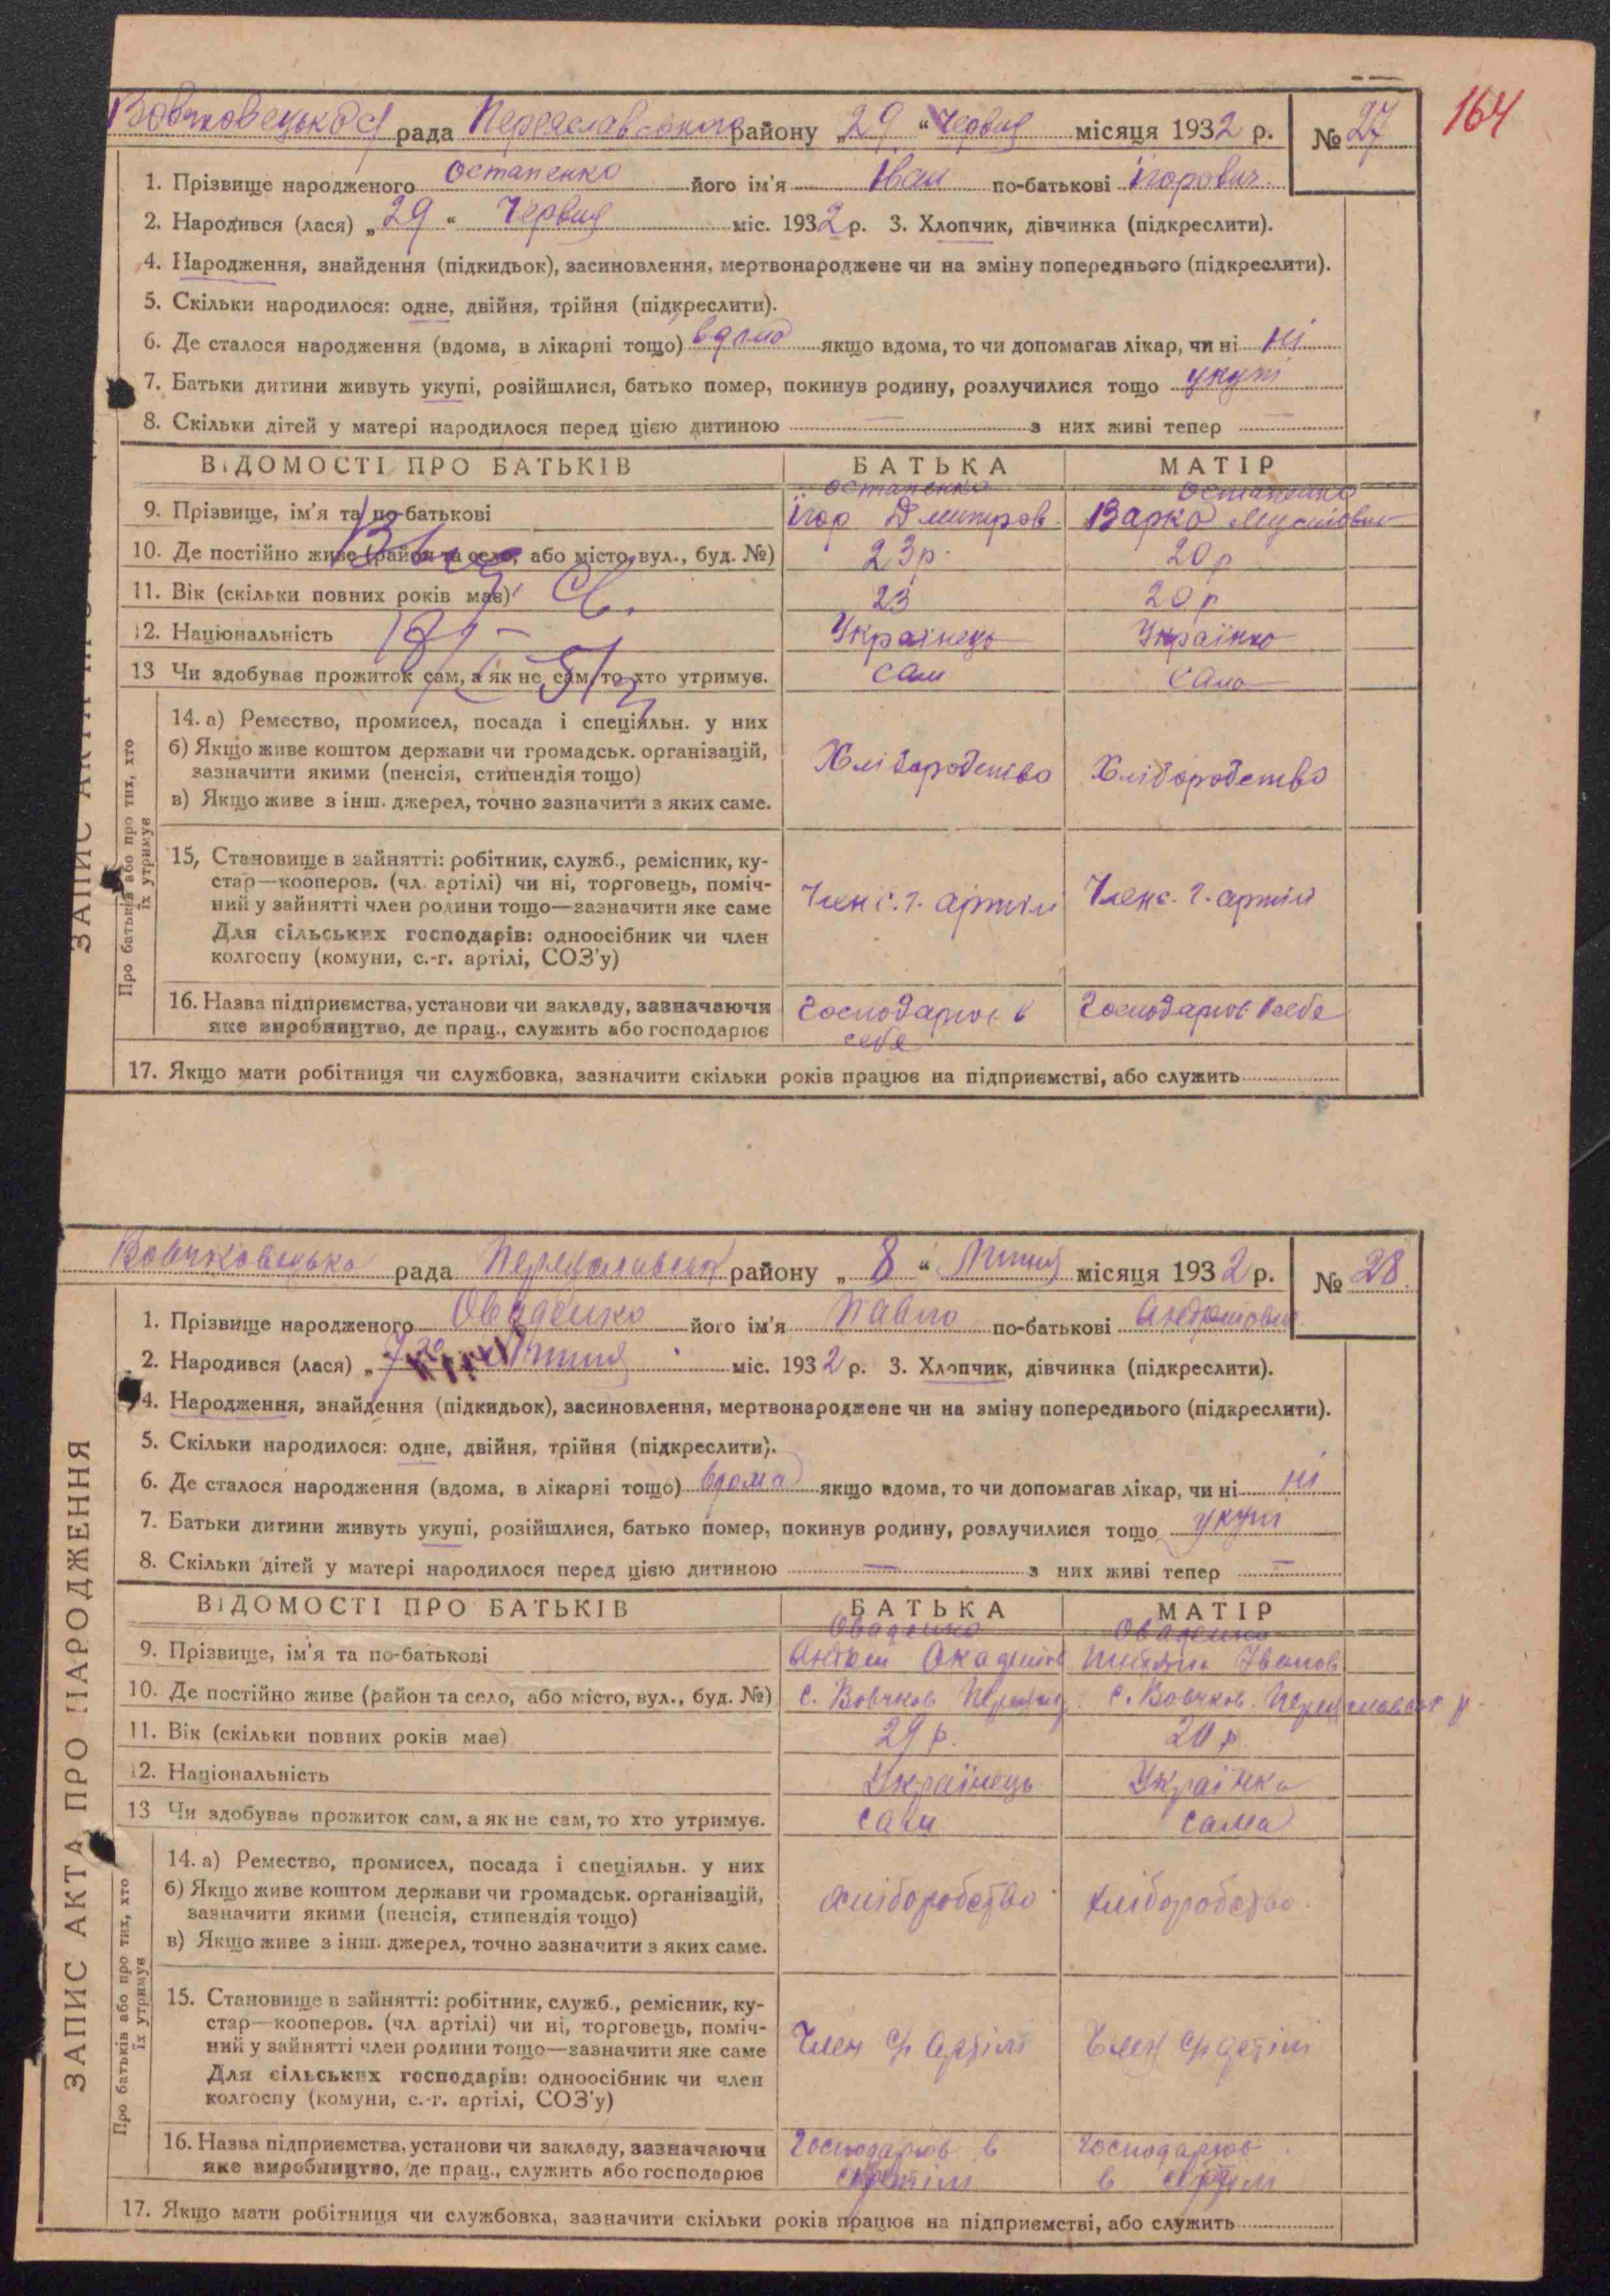 164
Вовчковецька рада Переяславського району „29“ Червня місяця 1932 р. № 27
1. Прізвище народженого Остапенко його ім'я Іван по-батькові Ігорович
2. Народився (лася) „29“ Червня міс. 1932 р. 3. Хлопчик, дівчинка (підкреслити).
4. Народження, знайдення (підкидьок), засиновлення, мертвонароджене чи на зміну попереднього (підкреслити).
5. Скільки народилося: одне, двійня, трійня (підкреслити).
6. Де сталося народження (вдома, в лікарні тощо) вдома якщо вдома, то чи допомагав лікар, чи ні ні
7. Батьки дитини живуть укупі, розійшлися, батько помер, покинув родину, розлучилися тощо укупі
8. Скільки дітей у матері народилося перед цією дитиною — з них живі тепер —
ВІДОМОСТІ ПРО БАТЬКІВ БАТЬКА МАТІР
Остапенко Остапенко
9. Прізвище, ім'я та по-батькові Ігор Дмитров Варка
10. Де постійно живе (район та село, або місто, вул., буд. №) 23 р. 20 р
11. Вік (скільки повних років має) 23 20 р
12. Національність Українець Українка
13 Чи здобував прожиток сам, а як не сам, то хто утримує. сам сама
14. а) Ремество, промисел, посада і спеціяльн. у них
б) Якщо живе коштом держави чи громадськ. організацій,
зазначити якими (пенсія, стипендія тощо) Хліборобство Хліборобство
в) Якщо живе з інш. джерел, точно зазначити з яких саме.
15, Становище в зайнятті: робітник, служб., ремісник, ку-
стар—кооперов. (чл. артілі) чи ні, торговець, поміч-
ний у зайнятті член родини тощо—зазначити яке саме Член с. г. артіли Член с. г. артіли
Для сільських господарів: одноосібник чи член
колгоспу (комуни, с.-г. артілі, СОЗ'у)
16. Назва підприємства, установи чи закладу, зазначаючи Господарює в Господарює в себе
яке виробництво, де прац., служить або господарює себе
17. Якщо мати робітниця чи службовка, зазначити скільки років працює на підприємстві, або служить
Про батьків або про тих, хто
їх утримує
Вовчковецька рада району „8“ Липня місяця 1932 р. № 28
1. Прізвище народженого Оваденко його ім'я Павло по-батькові Андронович
2. Народився (лася) „7 Липня міс. 1932 р. 3. Хлопчик, дівчинка (підкреслити).
4. Народження, знайдення (підкидьок), засиновлення, мертвонароджене чи на зміну попереднього (підкреслити).
5. Скільки народилося: одне, двійня, трійня (підкреслити).
6. Де сталося народження (вдома, в лікарні тощо) вдома якщо вдома, то чи допомагав лікар, чи ні ні
7. Батьки дитини живуть укупі, розійшлися, батько помер, покинув родину, розлучилися тощо укупі
8. Скільки дітей у матері народилося перед цією дитиною — з них живі тепер —
ВІДОМОСТІ ПРО БАТЬКІВ БАТЬКА МАТІР
Оваденко Оваденко
9. Прізвище, ім'я та по-батькові Іванов
10. Де постійно живе (район та село, або місто, вул., буд. №) с. Вовчков с. Вовчков
11. Вік (скільки повних років має) 29 р. 20 р.
12. Національність Українець Українка
13 Чи здобував прожиток сам, а як не сам, то хто утримує. сам сама
14. а) Ремество, промисел, посада і спеціяльн. у них
б) Якщо живе коштом держави чи громадськ. організацій,
зазначити якими (пенсія, стипендія тощо) хліборобство хліборобство
в) Якщо живе з інш. джерел, точно зазначити з яких саме.
15. Становище в зайнятті: робітник, служб., ремісник, ку-
стар—кооперов. (чл. артілі) чи ні, торговець, поміч-
ний у зайнятті член родини тощо—зазначити яке саме Член артілі Член артілі
Для сільських господарів: одноосібник чи член
колгоспу (комуни, с.-г. артілі, СОЗ'у)
16. Назва підприємства, установи чи закладу, зазначаючи Господарює в господарює
яке виробництво, де прац., служить або господарює в
17. Якщо мати робітниця чи службовка, зазначити скільки років працює на підприємстві, або служить
Про батьків або про тих, хто
їх утримує
ЗАПИС АКТА ПРО НАРОДЖЕННЯ